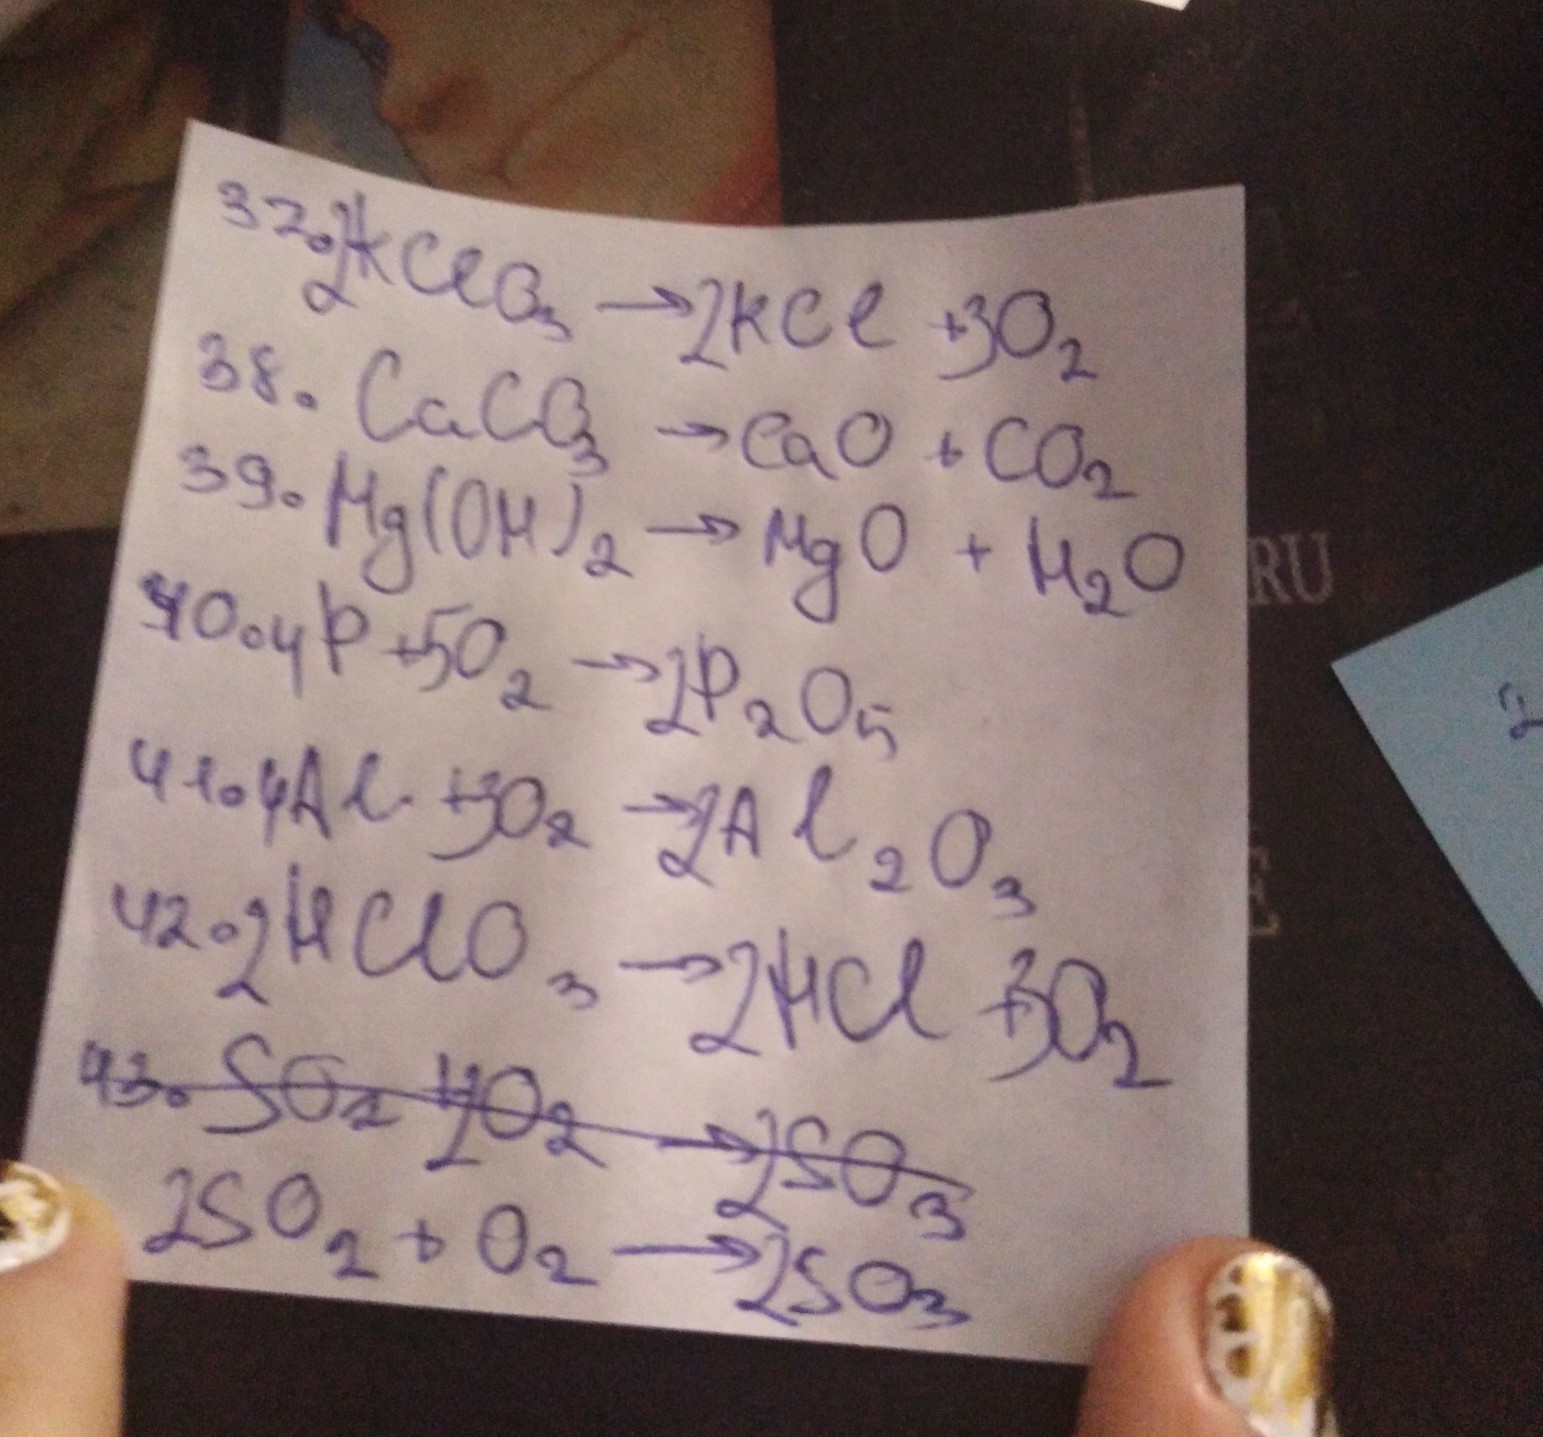 37. 2KClO₃ → 2KCl + 3O₂
38. CaCO₃ → CaO + CO₂
39. Mg(OH)₂ → MgO + H₂O
40. 4P + 5O₂ → 2P₂O₅
41. 4Al + 3O₂ → 2Al₂O₃
42. 2HClO₃ → 2HCl + 3O₂
43. SO₂ + 2O₂ → 2SO₃
2SO₂ + O₂ → 2SO₃
RU
E
2